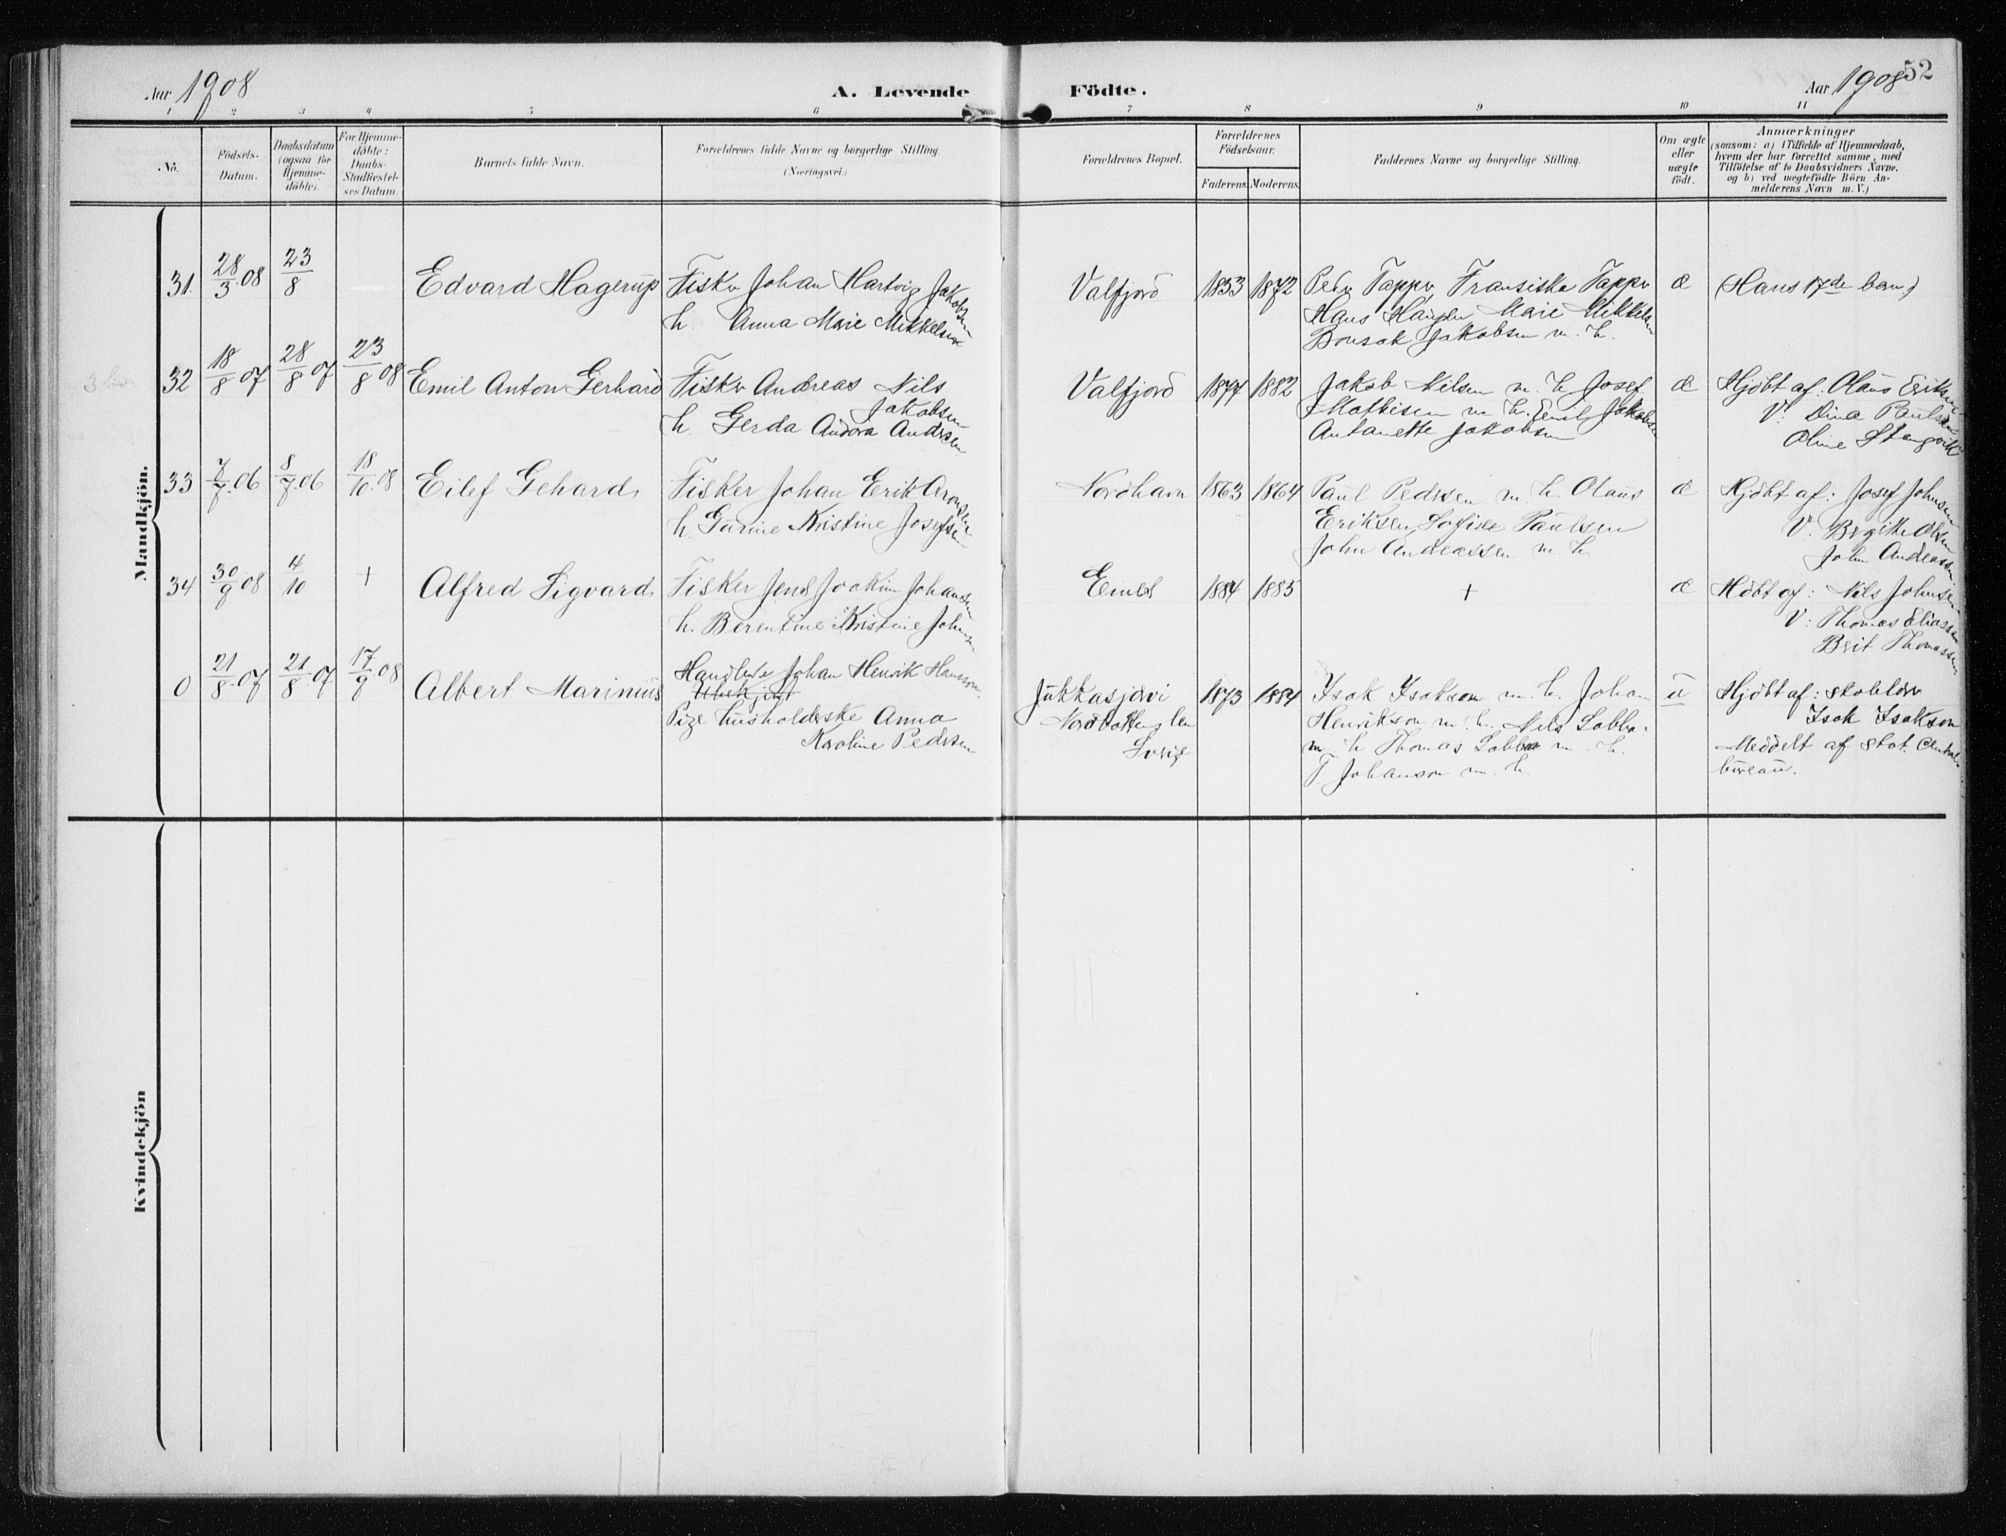 Aar 1908 A. Levende Födte. Aar 1908 52
1 2 3 4 5 6 7 8 9 10 11
No.
Födsels-Datum.
Daabsdatum (ogsaa for Hjemme-döbte).
For Hjemme-döbte: Daabs-Stadfæstel-ses Datum.
Barnets fulde Navn.
Forældrenes fulde Navne og borgerlige Stilling.
(Næringsvei.)
Forældrenes Bopæl.
Forældrenes Födselsaar.
Faderens. Moderens.
Faddernes Navne og borgerlige Stilling.
Om ægte eller uægte födt.
Anmærkninger
(saasom: a) i Tilfælde af Hjemmedaab,
hvem der har forrettet samme, med
Tilföielse af to Daabsvidners Navne.
og b) ved uægtefödte Börn An-
melderens Navn m. V.)
Mandkjön.
31. 28/3 08 23/8 Edvard Hagerup Fisker Johan Hartvig Jakobsen Valfjord 1853 1872 Peder Tapper, Fransiska Tapper æ (Hans 17de barn)
h. Anna Marie Mikkelsen Hans Hansen Marie Mikkelsen
Bonsak Jakobsen m. h.
32 18/8 07 28/8 07 23/8 08 Emil Anton Gerhard Fisker Andreas Nils Jakobsen Valfjord 1877 1882 Jakob Nilsen m. h. Josef æ Hjdbt af: Olaus Eriksen
h. Gerda Andora Andrsen Mathisen m h. Emil Jakobsen V. Dina Paulsen
Antonette Jakobsen Oline Stengvik
33 7/7 06 8/7 06 18/10 08 Eilef Gehard Fisker Johan Erik Aronsen Nordhavn 1863 1864 Paul Pedersen m. h. Olaus æ Hjdbt af: Josef Johnsen
h. Garine Kristine Josefsen Eriksen, Sofie Paulsen V. Brgitte Olsen
John Andreassen m. h. John Andreassen
34 30/9 08 4/10 + Alfred Sigvard Fisker Jens Joakim Johansen Eines 1884 1885 + æ Hdbt af: Nils Johnsen
h. Berentine Kristine Johnsen V: Thomas Eliassen
Brit Thomassen
0 21/8 07 21/8 07 17/9 08 Albert Marinius Handlende Johan Henrik Hansson Jukkasjærvi 1873 1884 Isak Isakson m. h. Johan u Hjdbt af: skoleldrer
Ubekjent Nordbottens len Henrikson m. h. Nils Labba Isak Isakson
Pige husholderske Anna Sverige m h Thomas Labba m. h. Meddelt af Stat. Central-
Karoline Pedersen T Johanson m. h. bureau.
Kvindekjön